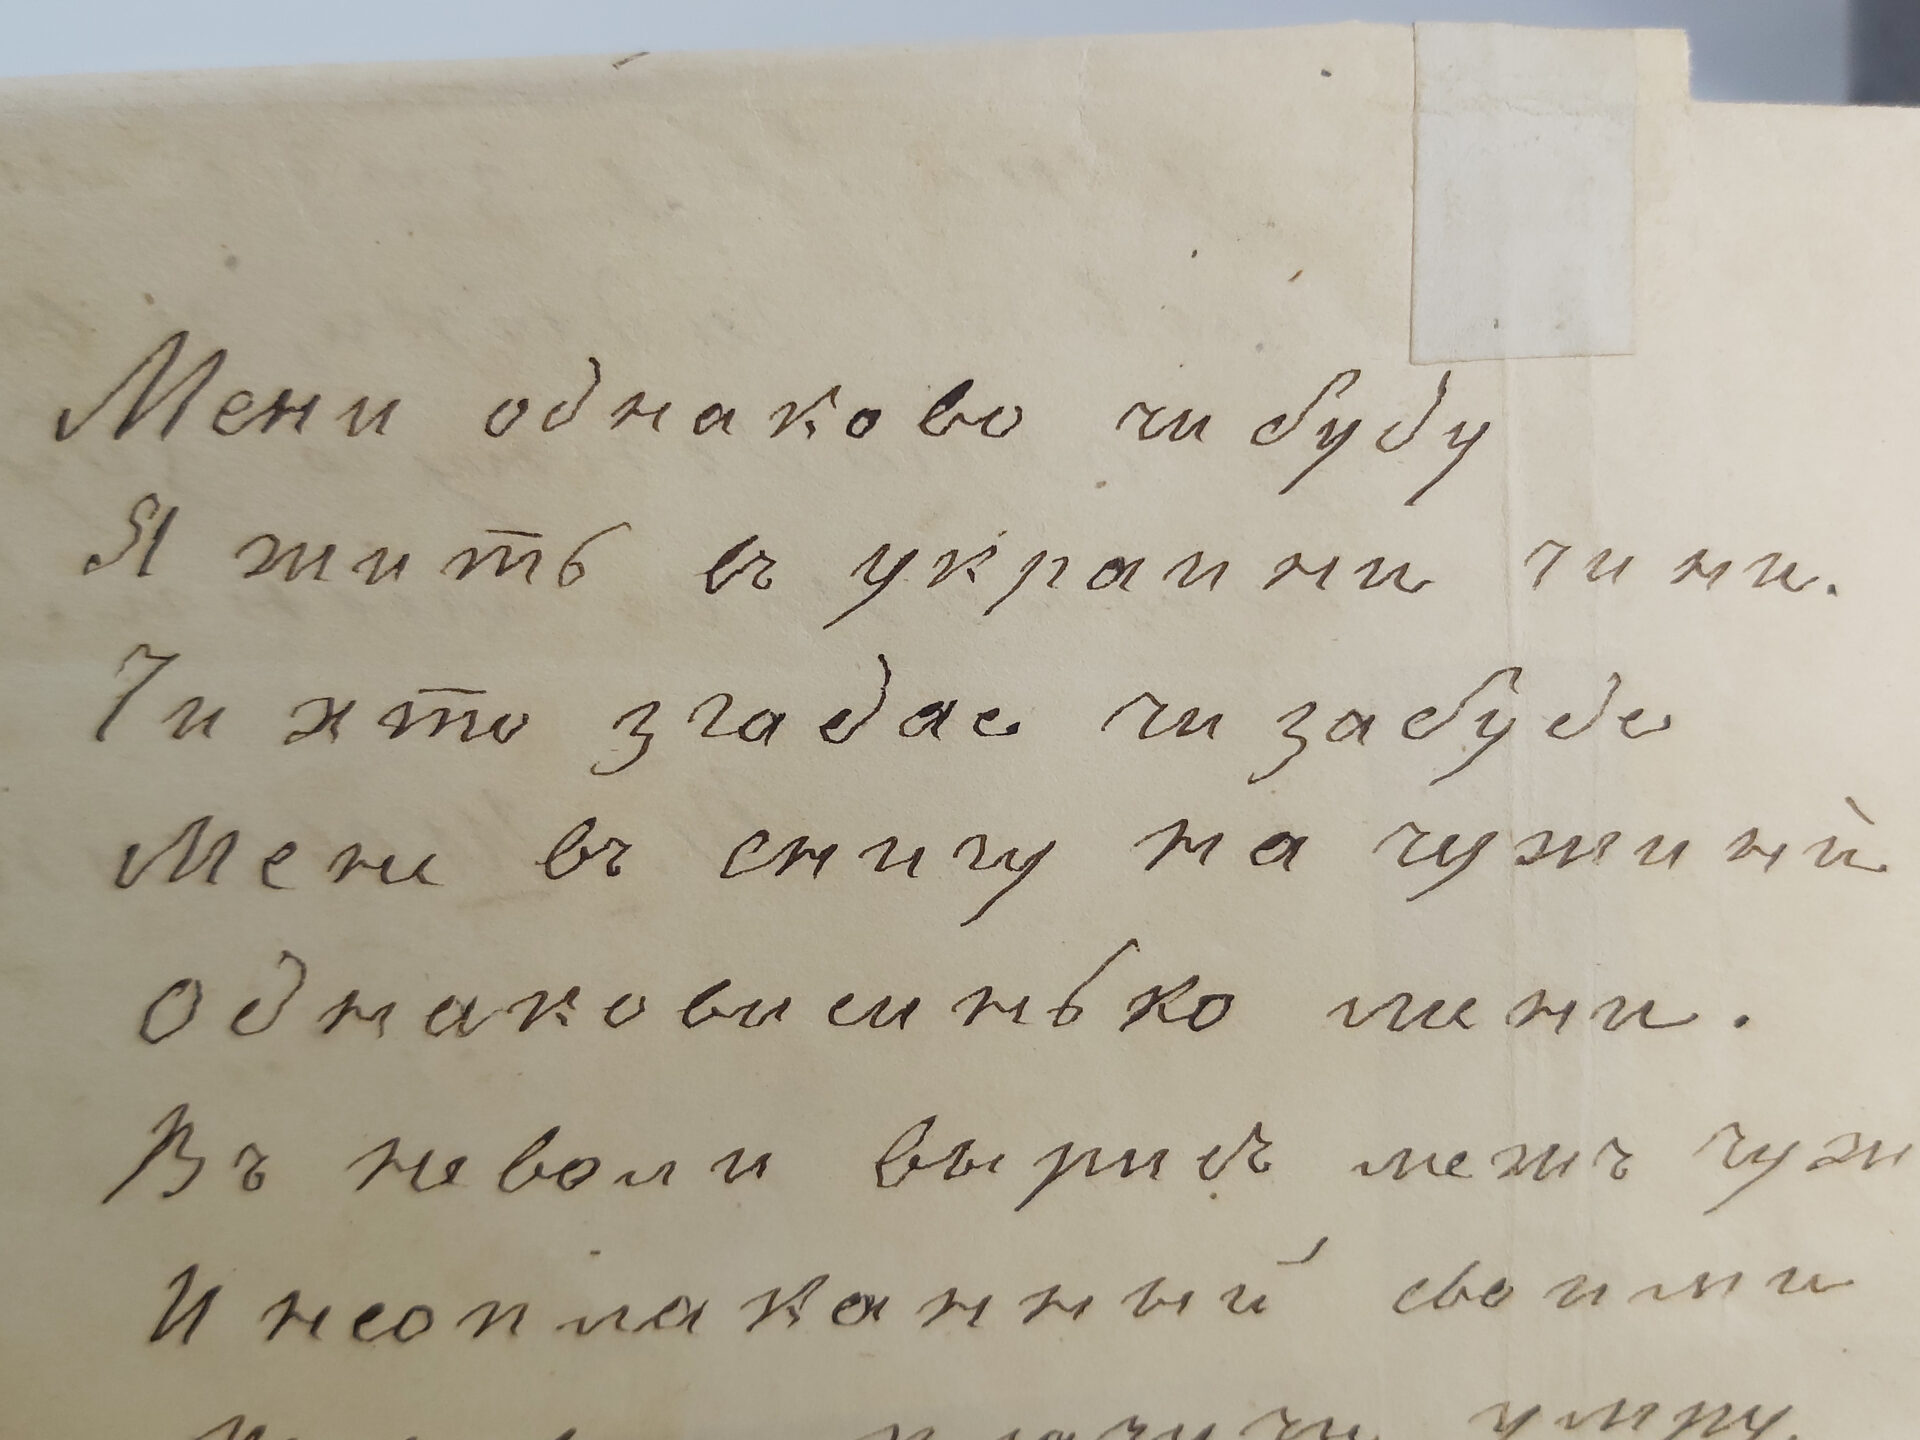 Мени однаково чи буду
Я жить въ украини чи ни.
Чи хто згадае чи забуде
Мене въ снигу на чужинй
Однаковисинько мени.
Въ неволи вырисъ межъ
И неоплаканный своими
умру.